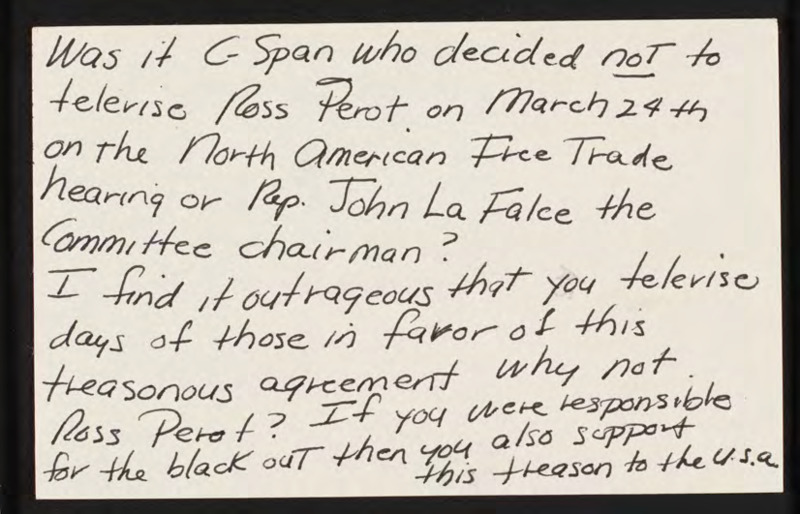 Was it C-Span who decided not to
televise Ross Perot on March 24th
on the North American Free Trade
hearing or Rep. John La Falce the
Committee chairman?
I find it outrageous that you televise
days of those in favor of this
treasonous agreement why not
Ross Perot? If you were responsible
for the black out then you also support
this treason to the U.S.A.